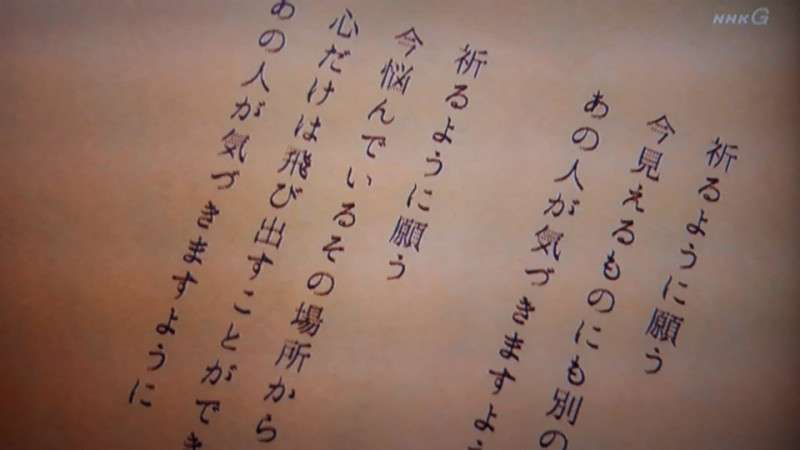 NHK G
祈るように願う
今見えるものにも別の
あの人が気づきますよう
祈るように願う
今悩んでいるその場所から
心だけは飛び出すことができ
あの人が気づきますように